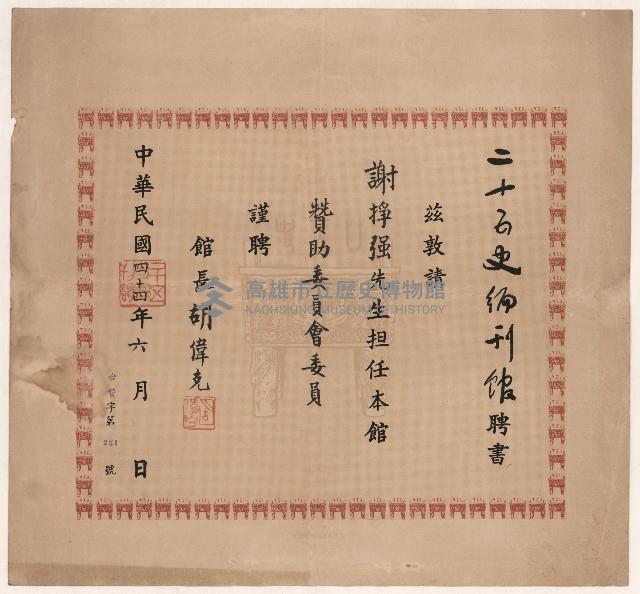 二十五史編刊館聘書
茲敦請
謝掙强先生担任本館
贊助委員會委員
謹聘
館長胡偉克
中華民國四十四年六月 日
字第 281 號
高雄市立歷史博物館
KAOHSIUNG MUSEUM OF HISTORY